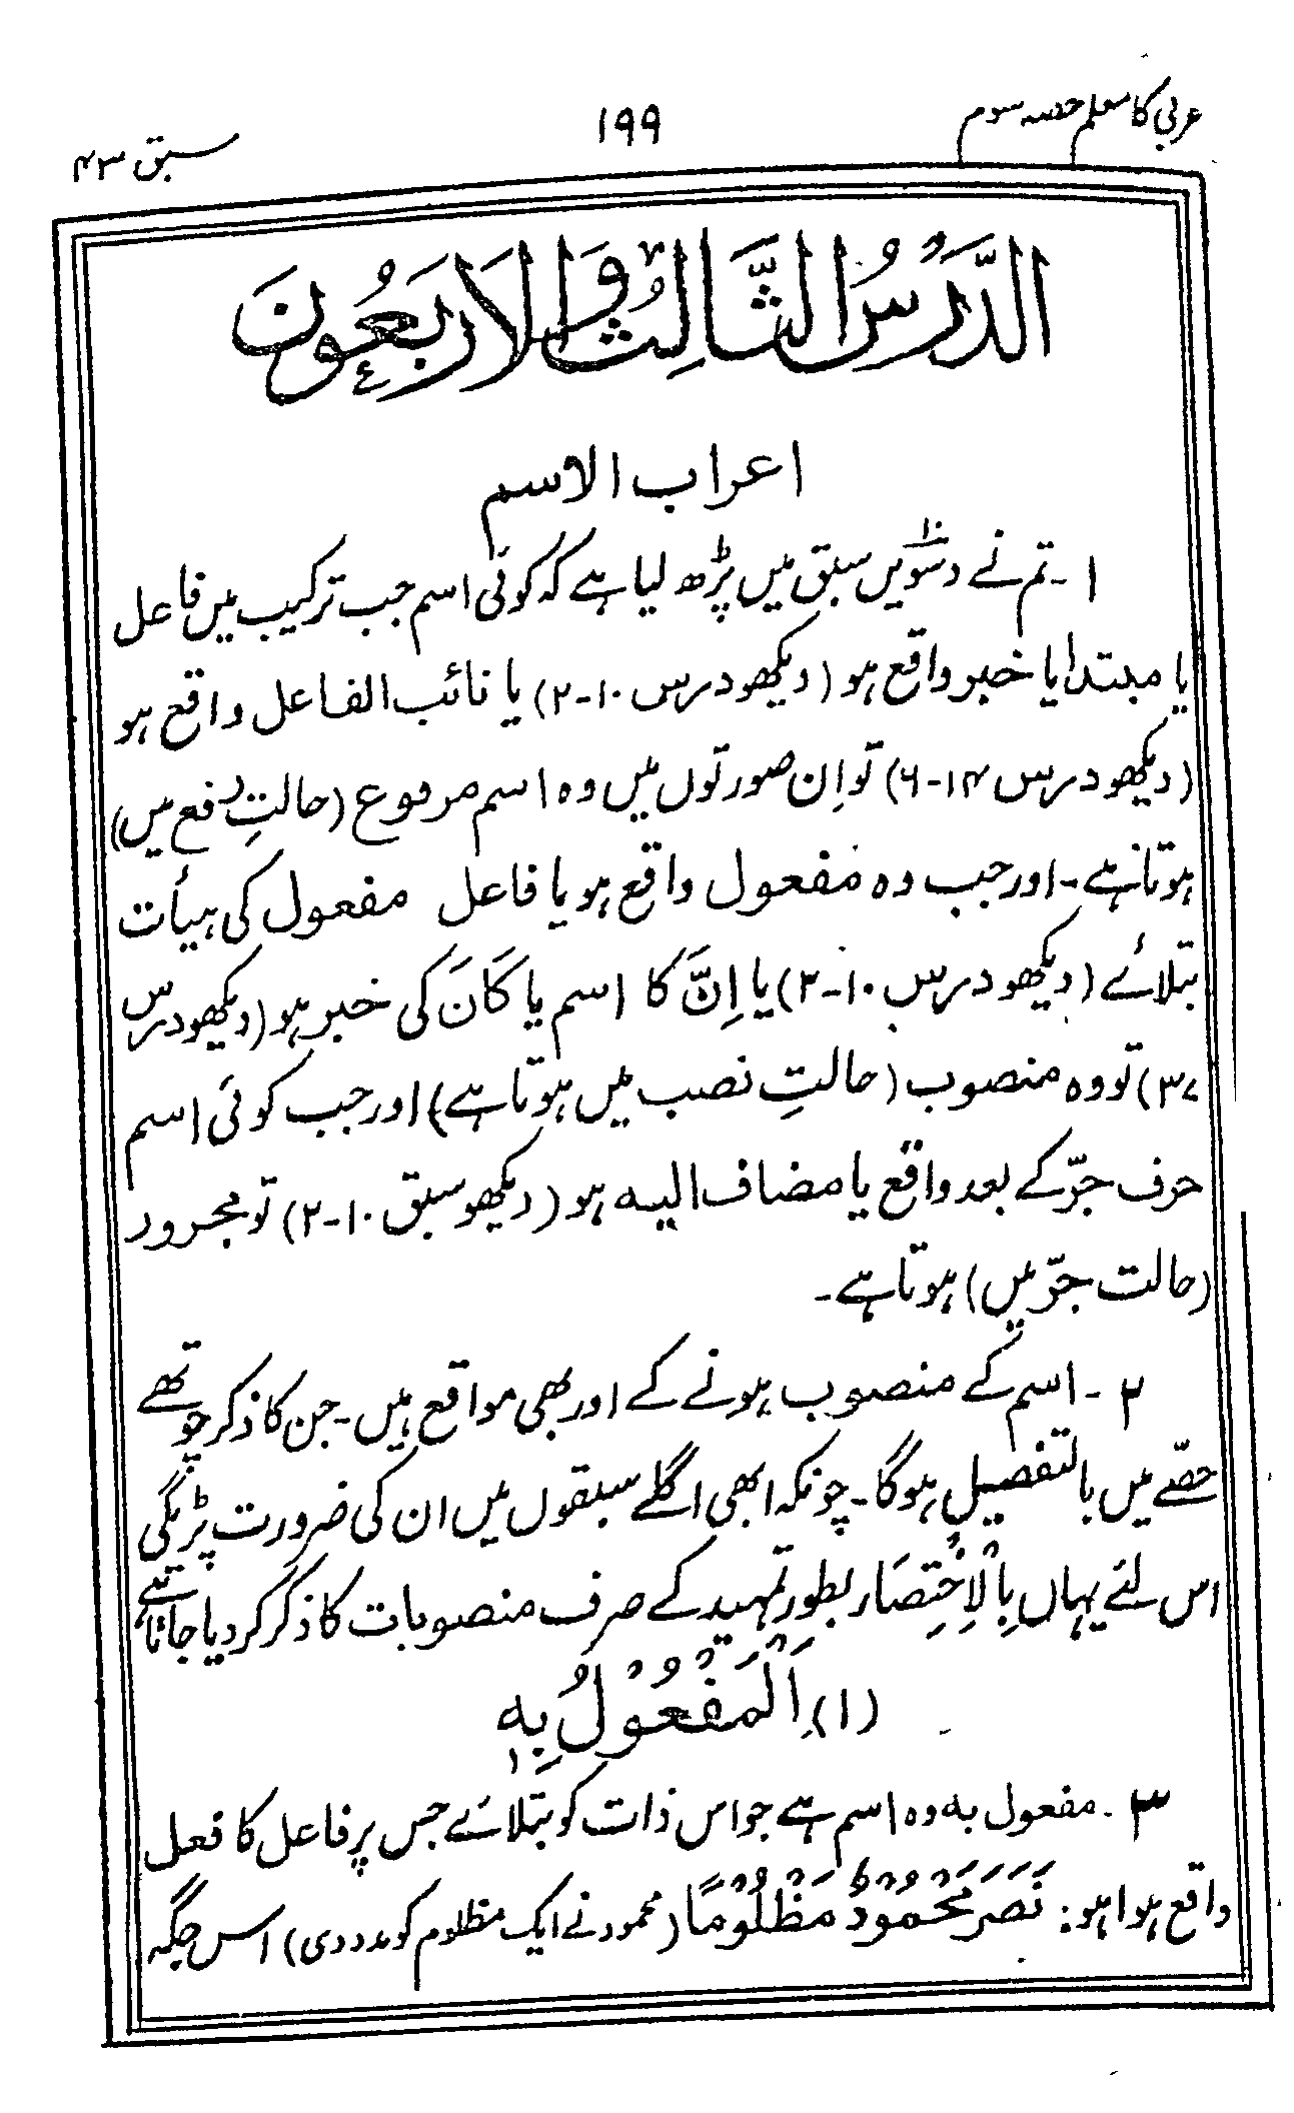 عربی کا معلم حصہ سوم
۱۹۹
سبق ۴۳
الدَّرْسُ الثَّالِثُ وَالْاَرْبَعُوْنَ
اعراب الاسم
۱ ۔ تم نے دسویں ۱۰ سبق میں پڑھ لیا ہے کہ کوئی اسم جب ترکیب میں فاعل
یا مبتدا یا خبر واقع ہو (دیکھو درس ۱۰-۲) یا نائب الفاعل واقع ہو
(دیکھو درس ۱۴-۶) تو اِن صورتوں میں وہ اسم مرفوع (حالتِ رفع میں)
ہوتا ہے۔ اور جب وہ مفعول واقع ہو یا فاعل مفعول کی ہیأت
بتلائے (دیکھو درس ۱۰-۲) یا اِنَّ کا اسم یا کَانَ کی خبر ہو (دیکھو درس
۳۷) تو وہ منصوب (حالتِ نصب میں ہوتا ہے) اور جب کوئی اسم
حرف جرّ کے بعد واقع یا مضاف الیہ ہو (دیکھو سبق ۱۰-۲) تو مجرور
(حالت جرّ میں) ہوتا ہے۔
۲ ۔ اسم کے منصوب ہونے کے اور بھی مواقع ہیں۔ جن کا ذکر چوتھے
حصّے میں بالتفصیل ہوگا۔ چونکہ ابھی اگلے سبقوں میں ان کی ضرورت پڑیگی
اس لئے یہاں بِالْاِخْتِصَار بطور تمہید کے صرف منصوبات کا ذکر کر دیا جاتا ہے
(۱) اَلْمَفْعُوْلُ بِهٖ
۳ ۔ مفعول بہ وہ اسم ہے جو اس ذات کو بتلائے جس پر فاعل کا فعل
واقع ہوا ہو: نَصَرَ مَحْمُوْدٌ مَظْلُوْمًا (محمود نے ایک مظلوم کو مدد دی) اس جگہ